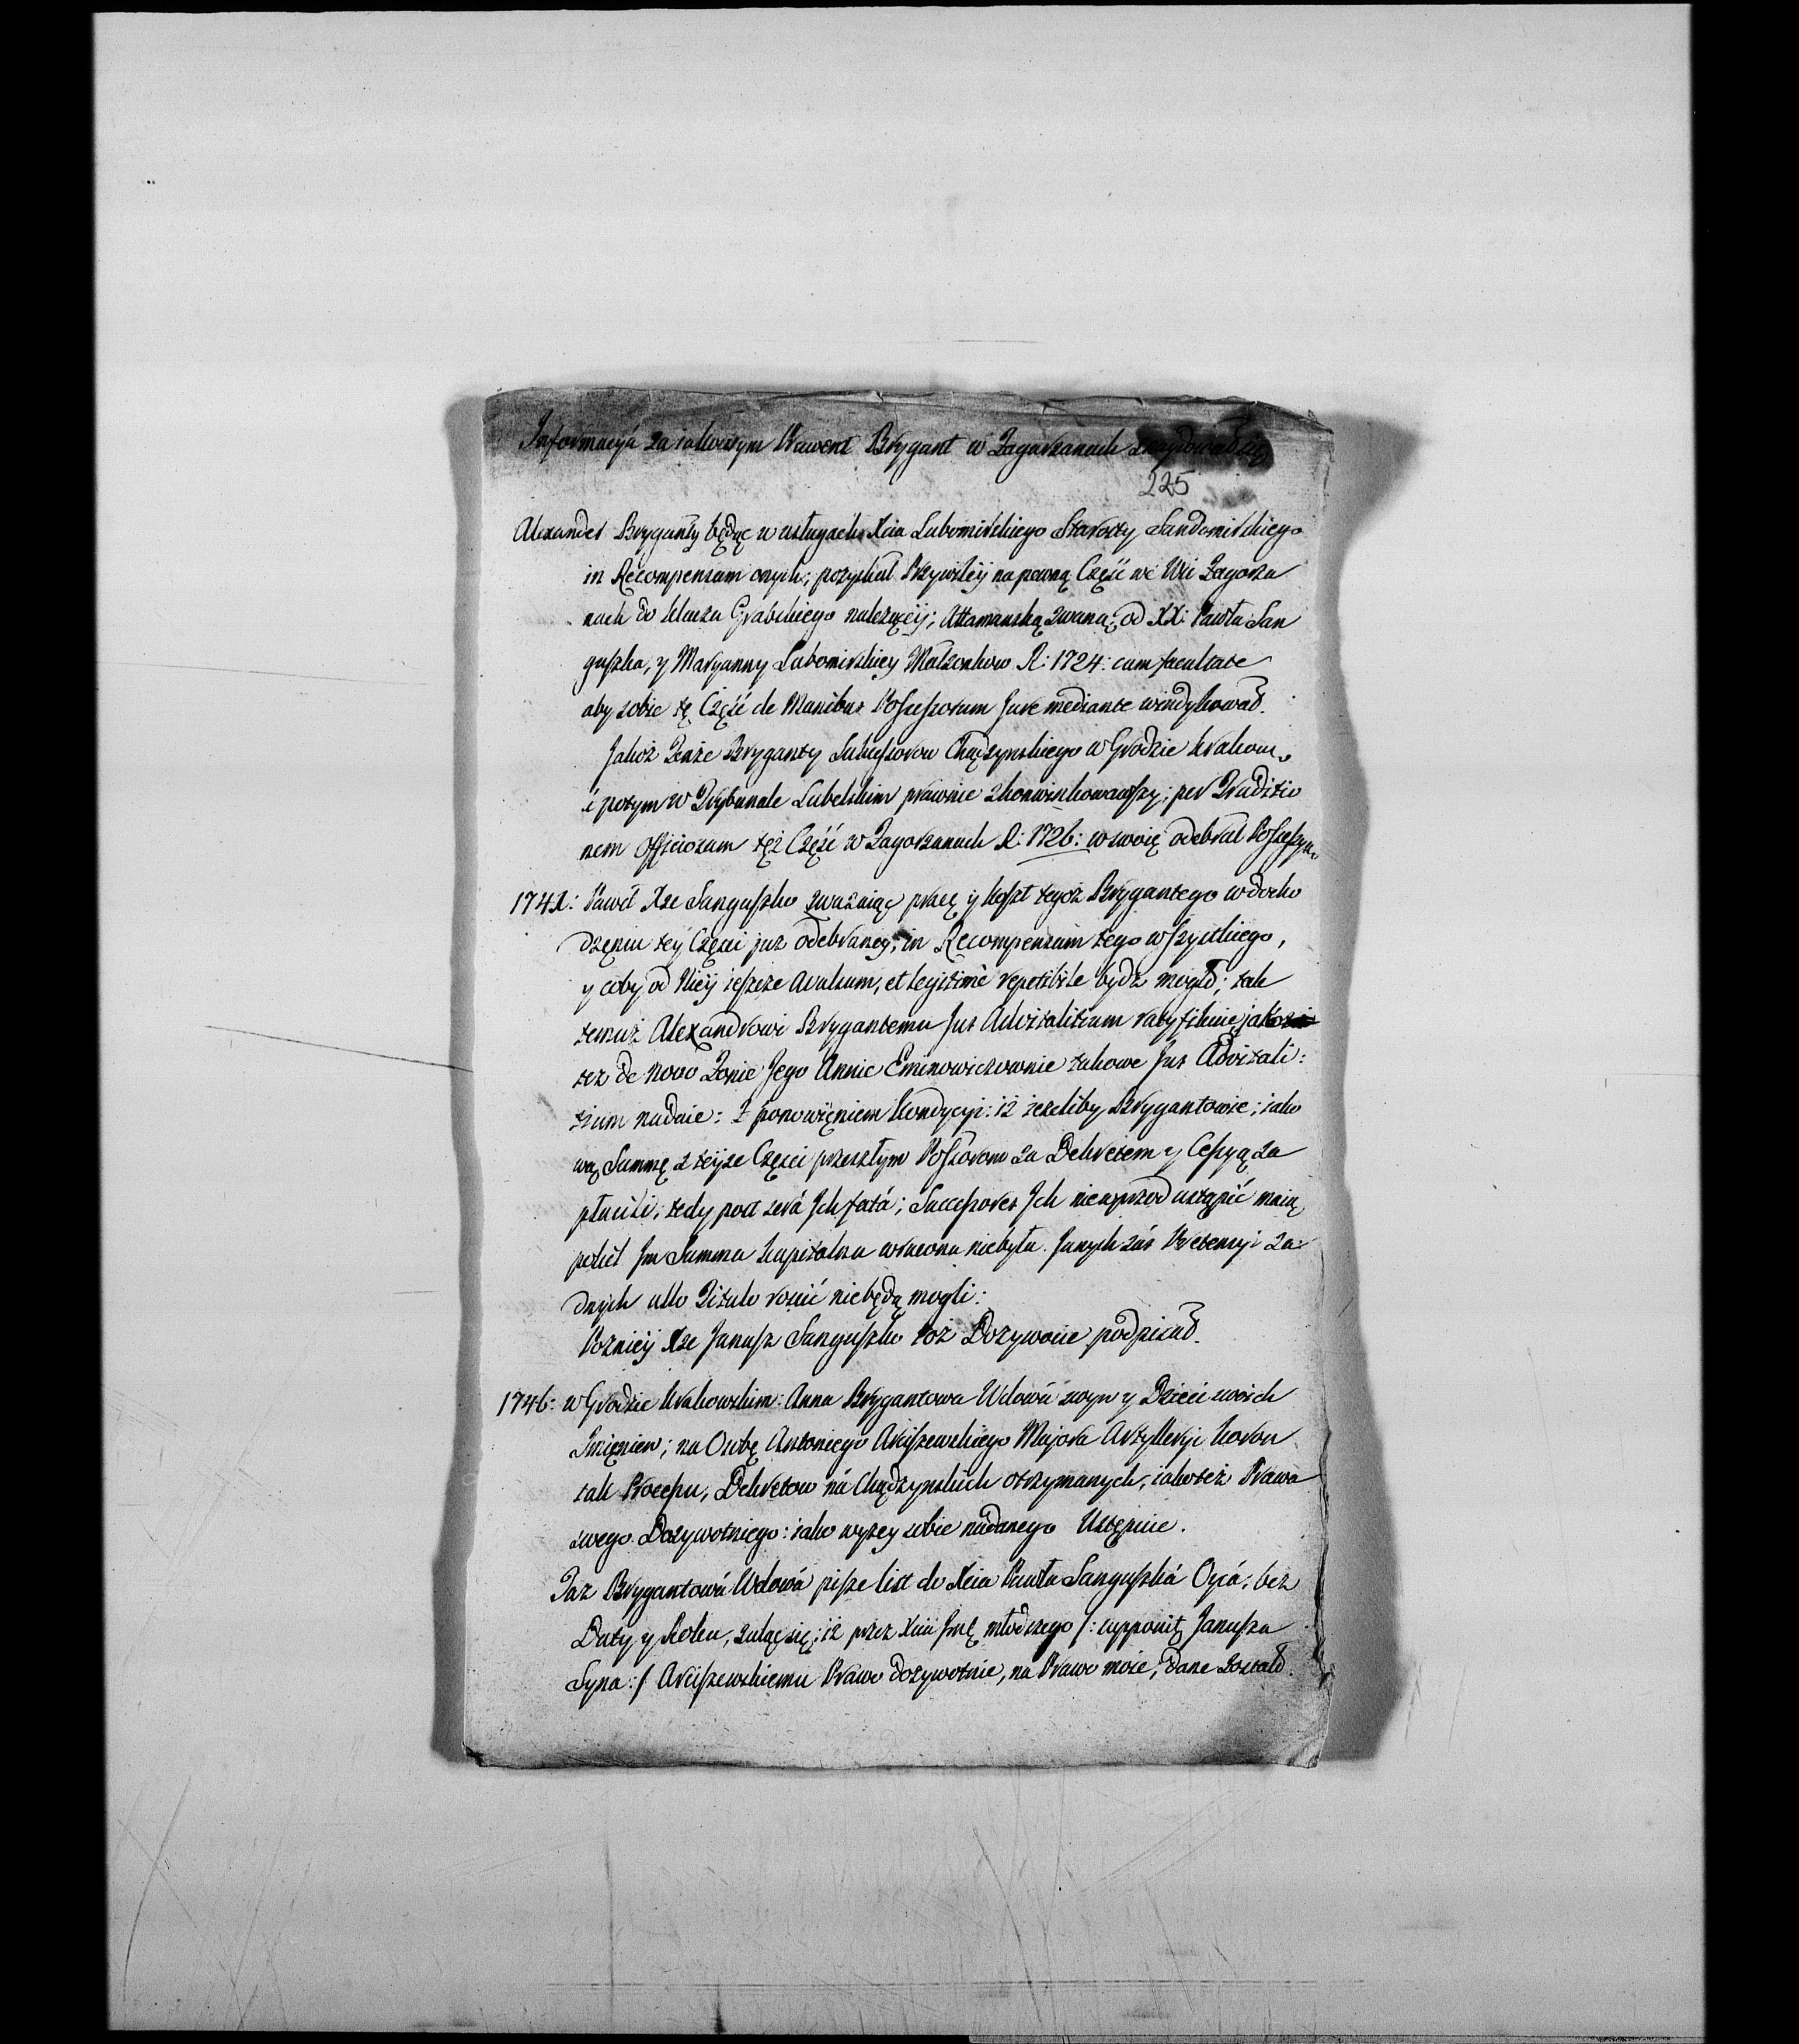 Informacyá za iakowym Prawem Brygant w Zagorzanach znaydował się
225
Alexander Bryganty będąc w usługach Xcia Lubomirskiego Starosty Sandomirskiego
in Recompensam onych; pozyskał Przywiley na pewną Część we Wsi Zagorza
nach do klucza Grabskiego należącey; Attamanską zwaną, od XX: Pawła San
guszka, y Maryanny Lubomirskiey Małżonkow R: 1724: cum facultate
aby sobie tę Część de Manibus Possessorum Jure mediante windykował.
Jakoż Tenże Bryganty Sukcessorow Chądzynskiego w Grodzie krakow:
i potym w Trybunale Lubelskim prawnie zkonwinkowawszy; per Traditio
nem Officiosam też Część w Zagorzanach R: 1726: w swoię odebrał Possessyą
1741: Paweł Xże Sanguszko zważaiąc pracę y koszt tegoż Brygantego w docho
dzęniu tey Częsci juz odebraney, in Recompensam tego wszystkiego,
y coby od Niey ieszcze avulsum, et legitimè repetibile bydz mogło; tak
temuż Alexandrowi Brygantemu Jus Advitalitium ratyfikuie jako
tez de novo Żonie Jego Annie Eminowiczownie takowe Jus Advitali:
tium nadaie: z ponowięniem kondycyi: iż iezeliby Brygantowie; iako
wą Summę z teyże Częsci przeszłym Possorom za Dekretem y Cessyą za
płacili; tedy post será Jch fatá; Successores Jch nieuprzod ustąpić maią
pokil Jm Summa kapitalna wrucona niebyła. Jnnych zás Pretensyi ża:
dnych ullo Titulo roscić niebędą mogli:
Pozniey Xże Janusz Sanguszko toż Dozywocie podpisał.
1746: w Grodzie krakowskim: Anna Brygantowa Wdowá swym y Dzieci swoich
Jmięniem; na Osobę Antoniego Arciszewskiego Majora Artylleryi koron
tak Processu, Dekretow ná Chądzynskich otrzymanych, iakoteż Prawa
swego Dozywotniego: iako wyzey sobie nádanego Ustępuie.
Taż Brygantowá Wdowá pisze list do Xcia Pawła Sanguszká Oycá; bez
Daty y Roku, zaląc się; iż przez Xcia Jmć młodszego /: supponit Janusza
Syna :/ Arciszewskiemu Prawo dozywotnie, na Prawo moie, dane zostało.